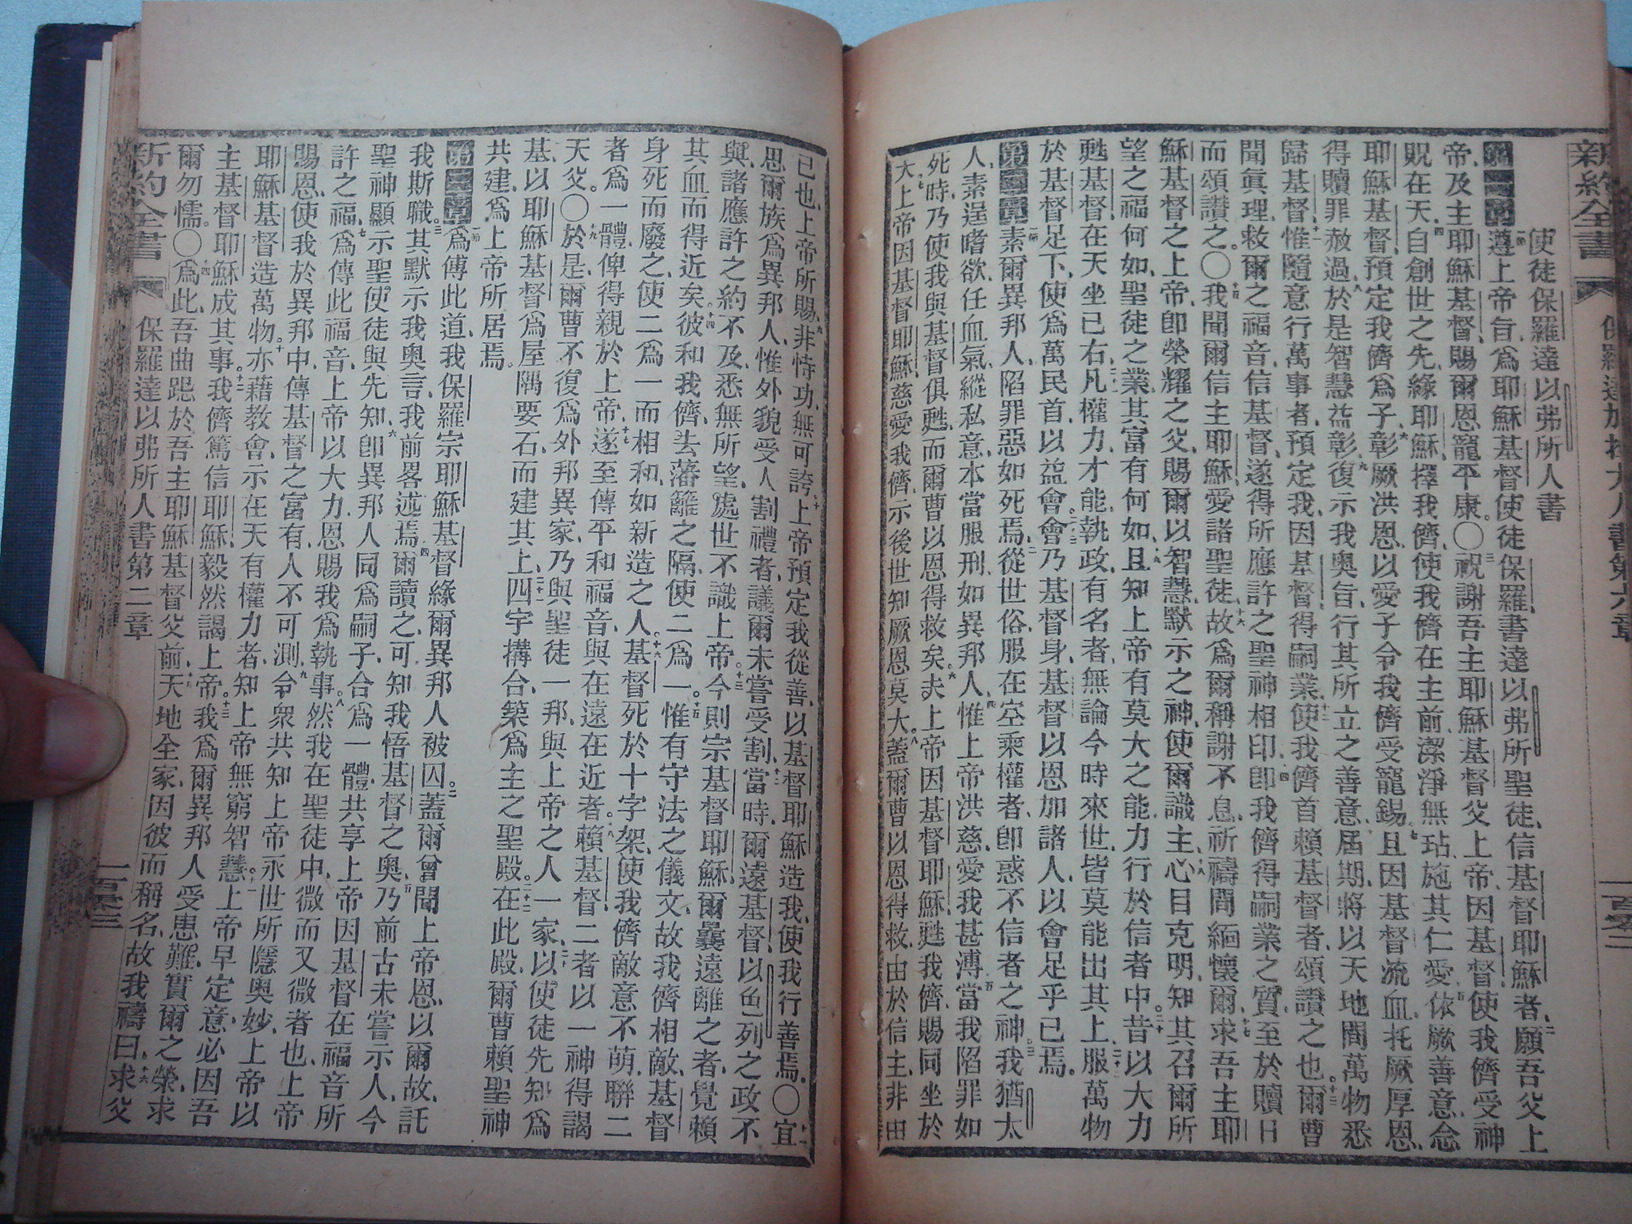 新約全書 保羅達加拉太人書第六章 一百零二
使徒保羅達以弗所人書
第一章一節遵上帝旨爲耶穌基督使徒保羅書達以弗所聖徒信基督耶穌者二願吾父上
帝及主耶穌基督賜爾恩寵平康○三祝謝吾主耶穌基督父上帝因基督使我儕受神
貺在天四自創世之先緣耶穌擇我儕使我儕在主前潔淨無玷施其仁愛五依厥善意念
耶穌基督預定我儕爲子六彰厥洪恩以愛子令我儕受寵錫七且因基督流血托厥厚恩
得贖罪赦過八於是智慧益彰九復示我奧旨行其所立之善意十屆期將以天地間萬物悉
歸基督十一惟隨意行萬事者預定我因基督得嗣業十二使我儕首賴基督者頌讚之也十三爾曹
聞眞理救爾之福音信基督遂得所應許之聖神相印十四卽我儕得嗣業之質至於贖日
而頌讚之○十五我聞爾信主耶穌愛諸聖徒十六故爲爾稱謝不息祈禱間緬懷爾十七求吾主耶
穌基督之上帝卽榮耀之父賜爾以智慧默示之神使爾識主十八心目克明知其召爾所
望之福何如聖徒之業其富有何如十九且知上帝有莫大之能力行於信者中二十昔以大力
甦基督在天坐己右二十一凡權力才能執政有名者無論今時來世皆莫能出其上二十二服萬物
於基督足下使爲萬民首以益會二十三會乃基督身基督以恩加諸人以會足乎已焉
第二章一節素爾異邦人陷罪惡如死焉二從世俗服在空乘權者卽惑不信者之神三我猶太
人素逞嗜欲任血氣縱私意本當服刑如異邦人四惟上帝洪慈愛我甚溥五當我陷罪如
死時乃使我與基督俱甦而爾曹以恩得救矣六夫上帝因基督耶穌甦我儕賜同坐於
天七上帝因基督耶穌慈愛我儕示後世知厥恩莫大八蓋爾曹以恩得救由於信主非由
已也上帝所賜九非恃功無可誇十上帝預定我從善以基督耶穌造我使我行善焉○十一宜
思爾族爲異邦人惟外貌受人割禮者議爾未嘗受割十二當時爾遠基督以色列之政不
與諸應許之約不及悉無所望處世不識上帝十三今則宗基督耶穌爾曩遠離之者覺賴
其血而得近矣十四彼和我儕去藩籬之隔使二爲一十五惟有守法之儀文故我儕相敵基督
身死而廢之使二爲一而相和如新造之人十六基督死於十字架使我儕敵意不萌聯二
者爲一體俾得親於上帝十七遂至傳平和福音與在遠在近者十八賴基督二者以一神得謁
天父○十九於是爾曹不復爲外邦異家乃與聖徒一邦與上帝之人一家二十以使徒先知爲
基以耶穌基督爲屋隅要石而建其上二十一四宇搆合築爲主之聖殿二十二在此殿爾曹賴聖神
共建爲上帝所居焉
第三章一節爲傳此道我保羅宗耶穌基督緣爾異邦人被囚二蓋爾曾聞上帝恩以爾故託
我斯職三其默示我奧言我前畧述焉四爾讀之可知我悟基督之奧五乃前古未嘗示人今
聖神顯示聖使徒與先知六卽異邦人同爲嗣子合爲一體共享上帝因基督在福音所
許之福七爲傳此福音上帝以大力恩賜我爲執事八然我在聖徒中微而又微者也上帝
賜恩使我於異邦中傳基督之富有人不可測九令衆共知上帝永世所隱奧妙上帝以
耶穌基督造萬物十亦藉教會示在天有權力者知上帝無窮智慧十一上帝早定意必因吾
主基督耶穌成其事十二我儕篤信耶穌毅然謁上帝十三我爲爾異邦人受患難實爾之榮求
爾勿懦○十四爲此吾曲跽於吾主耶穌基督父前十五天地全家因彼而稱名故我禱曰十六求父
新約全書 保羅達以弗所人書第二章